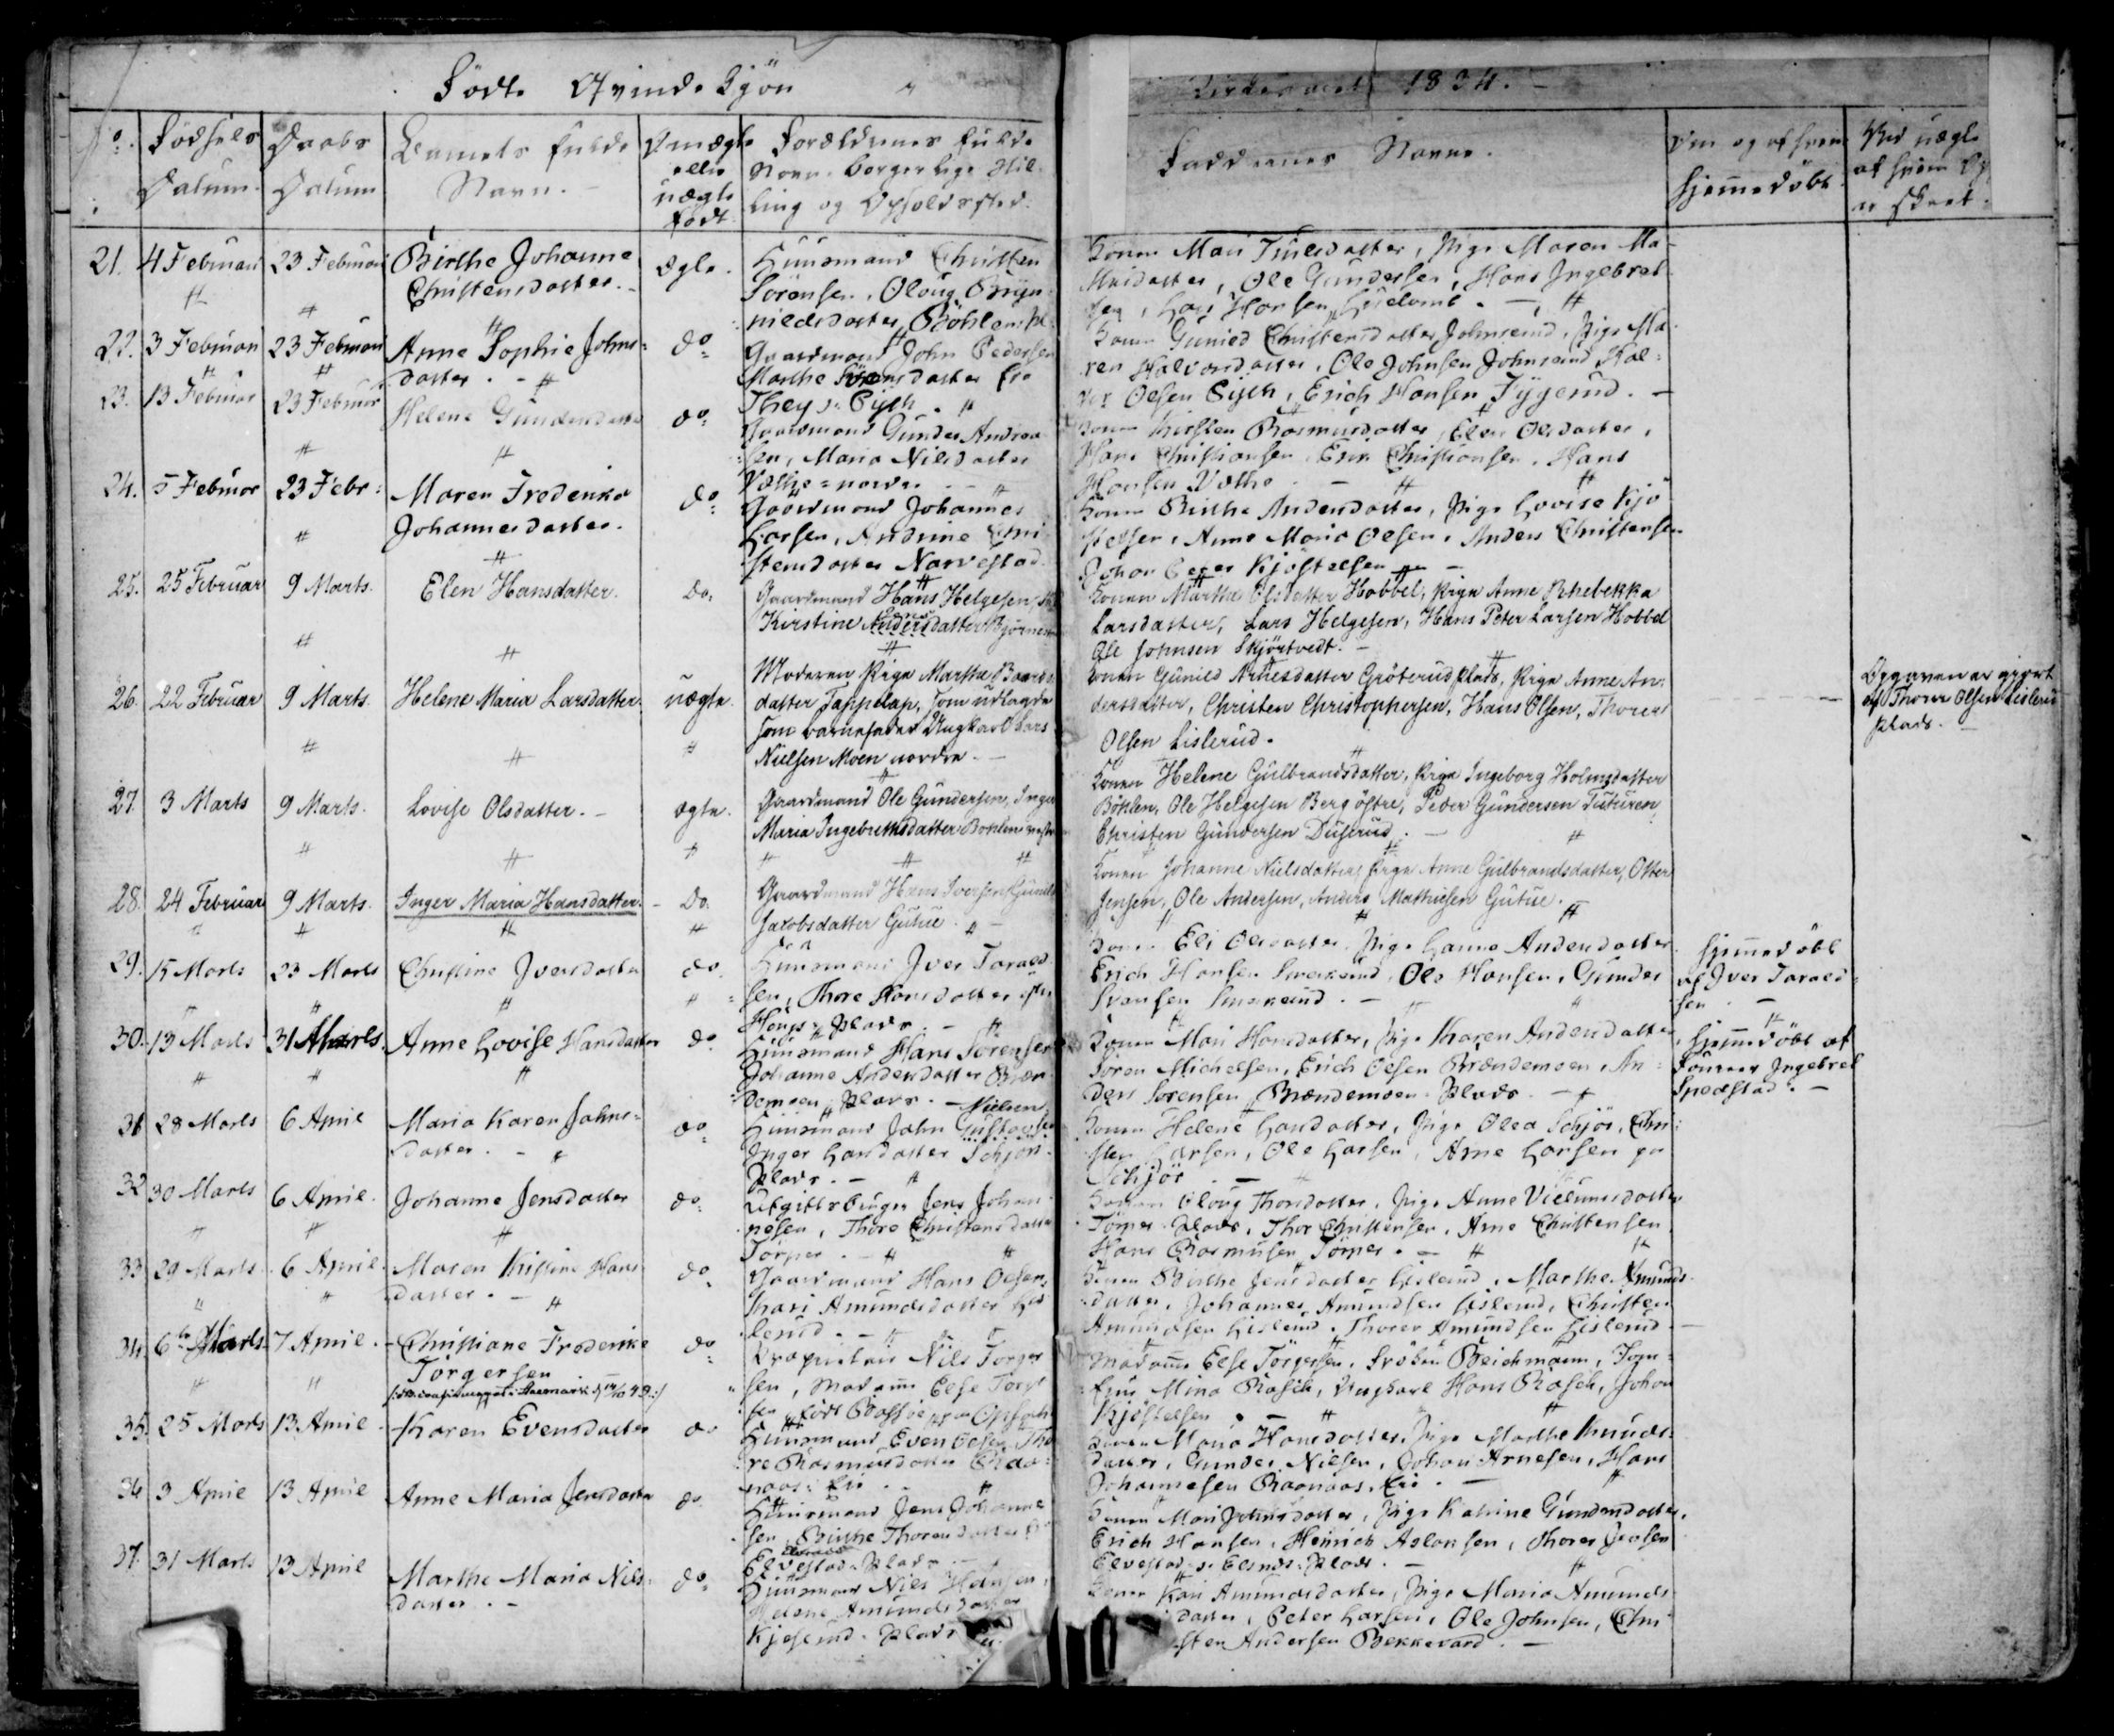 Födte Qvindekjön
1834.
No.
Födsels Datum.
Daabs Datum
Barnets fulde Navn.
Om ægte eller uægte födt
Forældrenes fulde Navn, borgerlige Stilling og Opholdssted.
Faddernes Navne.
hjemmedöbt
21. 4 Februari 23 Februari Birthe Johanne
Christensdatter.
ægte.
Huusmand Christen
Sörensen, Oloug Bryn-
nildsdatter Böhlens
Konen Mari Trulsdatter, Pige Maren Ma-
thisdatter, Ole Gundersen, Hans Ingebret-
sen, Lars Hansen
22. 3 Februari 23 Februari Anne Sophie Johns-
datter.
do
Gaardmand John Pedersen
Marthe Sörensdatter
Konen Gunild Christensdatter Johnsrud, Pige Ma-
ren Halvorsdatter, Ole Johnsen Johnsrud, Hal-
vor Olsen, Erich Hansen
23. 13 Februar 23 Februar Helene Gundersdatter
do
Gaardmand Gunder Andrea-
sen, Maria Nilsdatter
Konen Kirsten Rasmusdatter, Elen Olsdatter,
Hans Christiansen, Erik Christiansen, Hans
Hansen
24. 5 Februar 23 Febr: Maren Frederike
Johannesdatter.
do
Gaardmand Johannes
Larsen, Andrine Chri-
stensdatter Narvestad
Konen Birthe Andersdatter, Pige Lovise Kjö-
stelsen, Anne Maria Olsen, Anders Christensen
Johan Peter Kjöstelsen
25. 25 Februar 9 Marts. Elen Hansdatter.
do.
Gaardmand Hans Helgesen,
Kirstine Andersdatter
Konen Marthe Olsdatter Hobbel, Pige Anne Rhebekka
Larsdatter, Lars Helgesen, Hans Peter Larsen Hobbel
Ole Johnsen Skjörtvedt.
26. 22 Februar 9 Marts. Helene Maria Larsdatter.
uægte.
Moderen Pige Marthe Baards-
datter Tappelap, som udlagde
som barnefader Ungkarl Lars
Nielsen Moen nordre.
Konen Gunild Nilsesdatter Gröterud plads, Pige Anne An-
dersdatter, Christen Christophersen, Hans Olsen, Thorer
Olsen Lislerud.
Opgaven er gjort
af Thorer Olsen Lislerud
plads.
27. 3 Marts 9 Marts. Lovise Olsdatter.
ægte.
Gaardmand Ole Gundersen, Inger
Maria Ingebrethsdatter Bohlen
Konen Helene Gulbrandsdatter, Pige Ingeborg Holmsdatter
Böhlen, Ole Helgesen Berg östre, Peder Gundersen Tuturen
Christen Gundersen Duserud.
28. 24 Februar 9 Marts. Inger Maria Hansdatter.
Do.
Gaardmand Hans Iversen, Gunild
Jacobsdatter Gutue.
Konen Johanne Nielsdatter, Pige Anne Gulbrandsdatter, Otter
Jensen, Ole Andersen, Anders Mathiesen Gutue.
29. 15 Marts 23 Marts Christine Iversdatter
do.
Huusmand Iver Torald-
sen, Thore Hansdatter
Plads.
Konen Eli Olsdatter, Pige Hanne Andersdatter
Erich Hansen Smerkerud, Ole Hansen, Gunder
Svensen Smerkerud.
hjemmedöbt
af Iver Torald-
sen.
30. 13 Marts 31 Marts. Anne Lovise Hansdatter
do
Huusmand Hans Sörensen
Johanne Andersdatter Bræn-
demoen Plads.
Konen Mari Hansdatter, Pige Karen Andersdatter
Sören Michelsen, Erich Olsen Brændemoen, An-
ders Sörensen Brændemoen Plads.
hjemmedöbt af
Ingebret
Spedstad.
31 28 Marts 6 April Maria Karen Johns-
datter.
do
Nielsen
Huusmand John Gustavsen
Inger Larsdatter Schjör
Plads.
Konen Helene Larsdatter, Pige Olea Schjör, Chri-
sten Larsen, Ole Larsen, Arne Larsen
Schjör
32 30 Marts 6 April. Johanne Jensdatter
do
Jens Johan-
nesen, Thore Christensdatter
Törper.
Konen Oloug Thorsdatter, Pige Anne
Törper Plads, Thor Christensen, Arne Christensen
Hans Rasmusen Törper.
33 29 Marts 6 April. Maren Kristine Hans-
datter.
do
Gaardmand Hans Olsen,
Kari Amundsdatter Lis-
lerud.
Konen Birthe Jensdatter Lislerud, Marthe Amunds-
datter, Johannes Amundsen Lislerud, Christen
Amundsen Lislerud, Thorer Amundsen Lislerud
34. 6te Marts 7 April. Christiane Frederike
Torgersen
do
Proprietair Nils Torger
sen, Madame Else Torger
sen
Madame Else Törgersen, Fröken Beichmann, Jom-
frue Mina Rasch, Ungkarl Hans Rasch, Johan
Kjöstelsen
35. 25 Marts 13 April Karen Evensdatter
do
Huusmand Even Olsen, Tho-
re Rasmusdatter
Konen Maria Hansdatter, Pige Marthe Knuds-
datter, Gunder Nilsen, Johan Arnesen, Hans
Johannesen Raanaas Eie.
36 3 April 13 April Anne Maria Jensdatter
do.
Huusmand Jens Johanne-
sen, Birthe Thorersdatter
Elvestad Plads
Konen Mari Johnsdatter, Pige Katrine Gundersdatter,
Erich Hansen, Henrich Aslaksen, Thorer Jensen
Elvestad Plads.
37. 31 Marts 13 April Marthe Maria Nils-
datter.
do
Huusmand Nils Hansen,
Helene Amundsdatter
Kjoserud Plads
Konen Kari Amundsdatter, Pige Maria Amunds-
datter, Peter Larsen, Ole Johnsen, Chri-
sten Andersen Bekkevard.